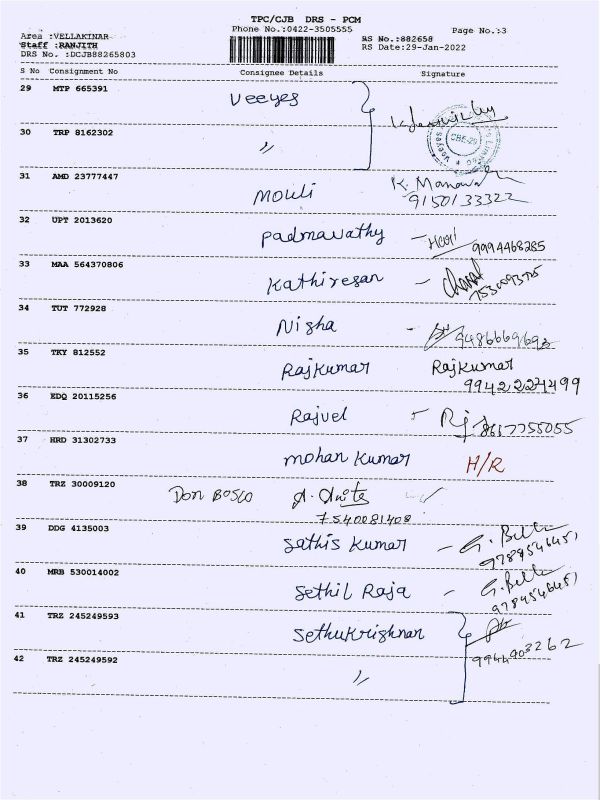 TPC/CJB DRS - PCM
Phone No.:0422-3505555
Page No.:3
Area :VELLAKINAR
Staff :RANJITH
DRS No. :DCJB88265803
RS No.:882658
RS Date:29-Jan-2022
S No Consignment No Consignee Details Signature
29 MTP 665391 Veeyes
30 TRP 8162302 〃
CBE-29
31 AMD 23777447 Mouli K. Manova
9150133322
32 UPT 2013620 Padmavathy - Hari 9994468285
33 MAA 564370806 Kathiresan -
34 TUT 772928 Nisha - 9486669693
35 TKY 812552 Rajkumar Rajkumar
9942227499
36 EDQ 20115256 Rajvel - 8667755055
37 HRD 31302733 Mohan Kumar H/R
38 TRZ 30009120 Don Bosco A. Anite
7540081408
39 DDG 4135003 Sathis Kumar - G. Bella
9789546451
40 MRB 530014002 Sethil Raja - G. Bella
9789546451
41 TRZ 245249593 Sethukrishnan
9944903262
42 TRZ 245249592 〃